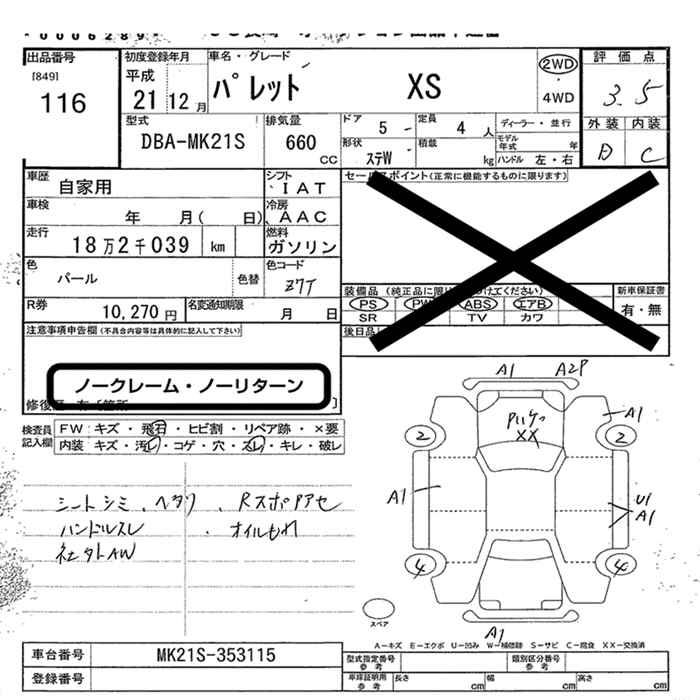 出品番号
[849]
116
初度登録年月
平成
21 12月
車名・グレード
パレット XS
2WD
4WD
評価点
3.5
外装 内装
B C
型式
DBA-MK21S
排気量
660
cc
ドア
5 -
定員
4 人
ディーラー・並行
モデル年式 年
形状
ステW
積載
kg
ハンドル 左・右
車歴
自家用
シフト
IAT
セールスポイント(正常に機能するものに限ります)
車検
年 月( 日)
冷房
AAC
走行
18万2千039 km
燃料
ガソリン
色
パール
色替
色コード
Z7T
装備品(純正品に限り
けてください)
PS PW ABS エアB
SR TV カワ
新車保証書
有・無
R券
10,270円
名変通知期限
月 日
後日品
注意事項申告欄(不具合内容等は具体的に記入して下さい)
ノークレーム・ノーリターン
修復歴
検査員記入欄
FW キズ・飛石・ヒビ割・リペア跡・×要
内装 キズ・汚レ・コゲ・穴・スレ・キレ・破レ
シートシミ、ヘタリ
・Rスポリアセ
ハンドルスレ
・オイルもれ
社外AW
A1 A2P
A1
2 2
XX
A1
U1
A1
4 4
A1
スペア
A-キズ E-エクボ U-凹み W-補修跡 S-サビ C-腐食 XX-交換済
車台番号
MK21S-353115
登録番号
型式指定番号
参考
類別区分番号
参考
車庫証明用
参考
長さ
cm
幅
cm
高さ
cm